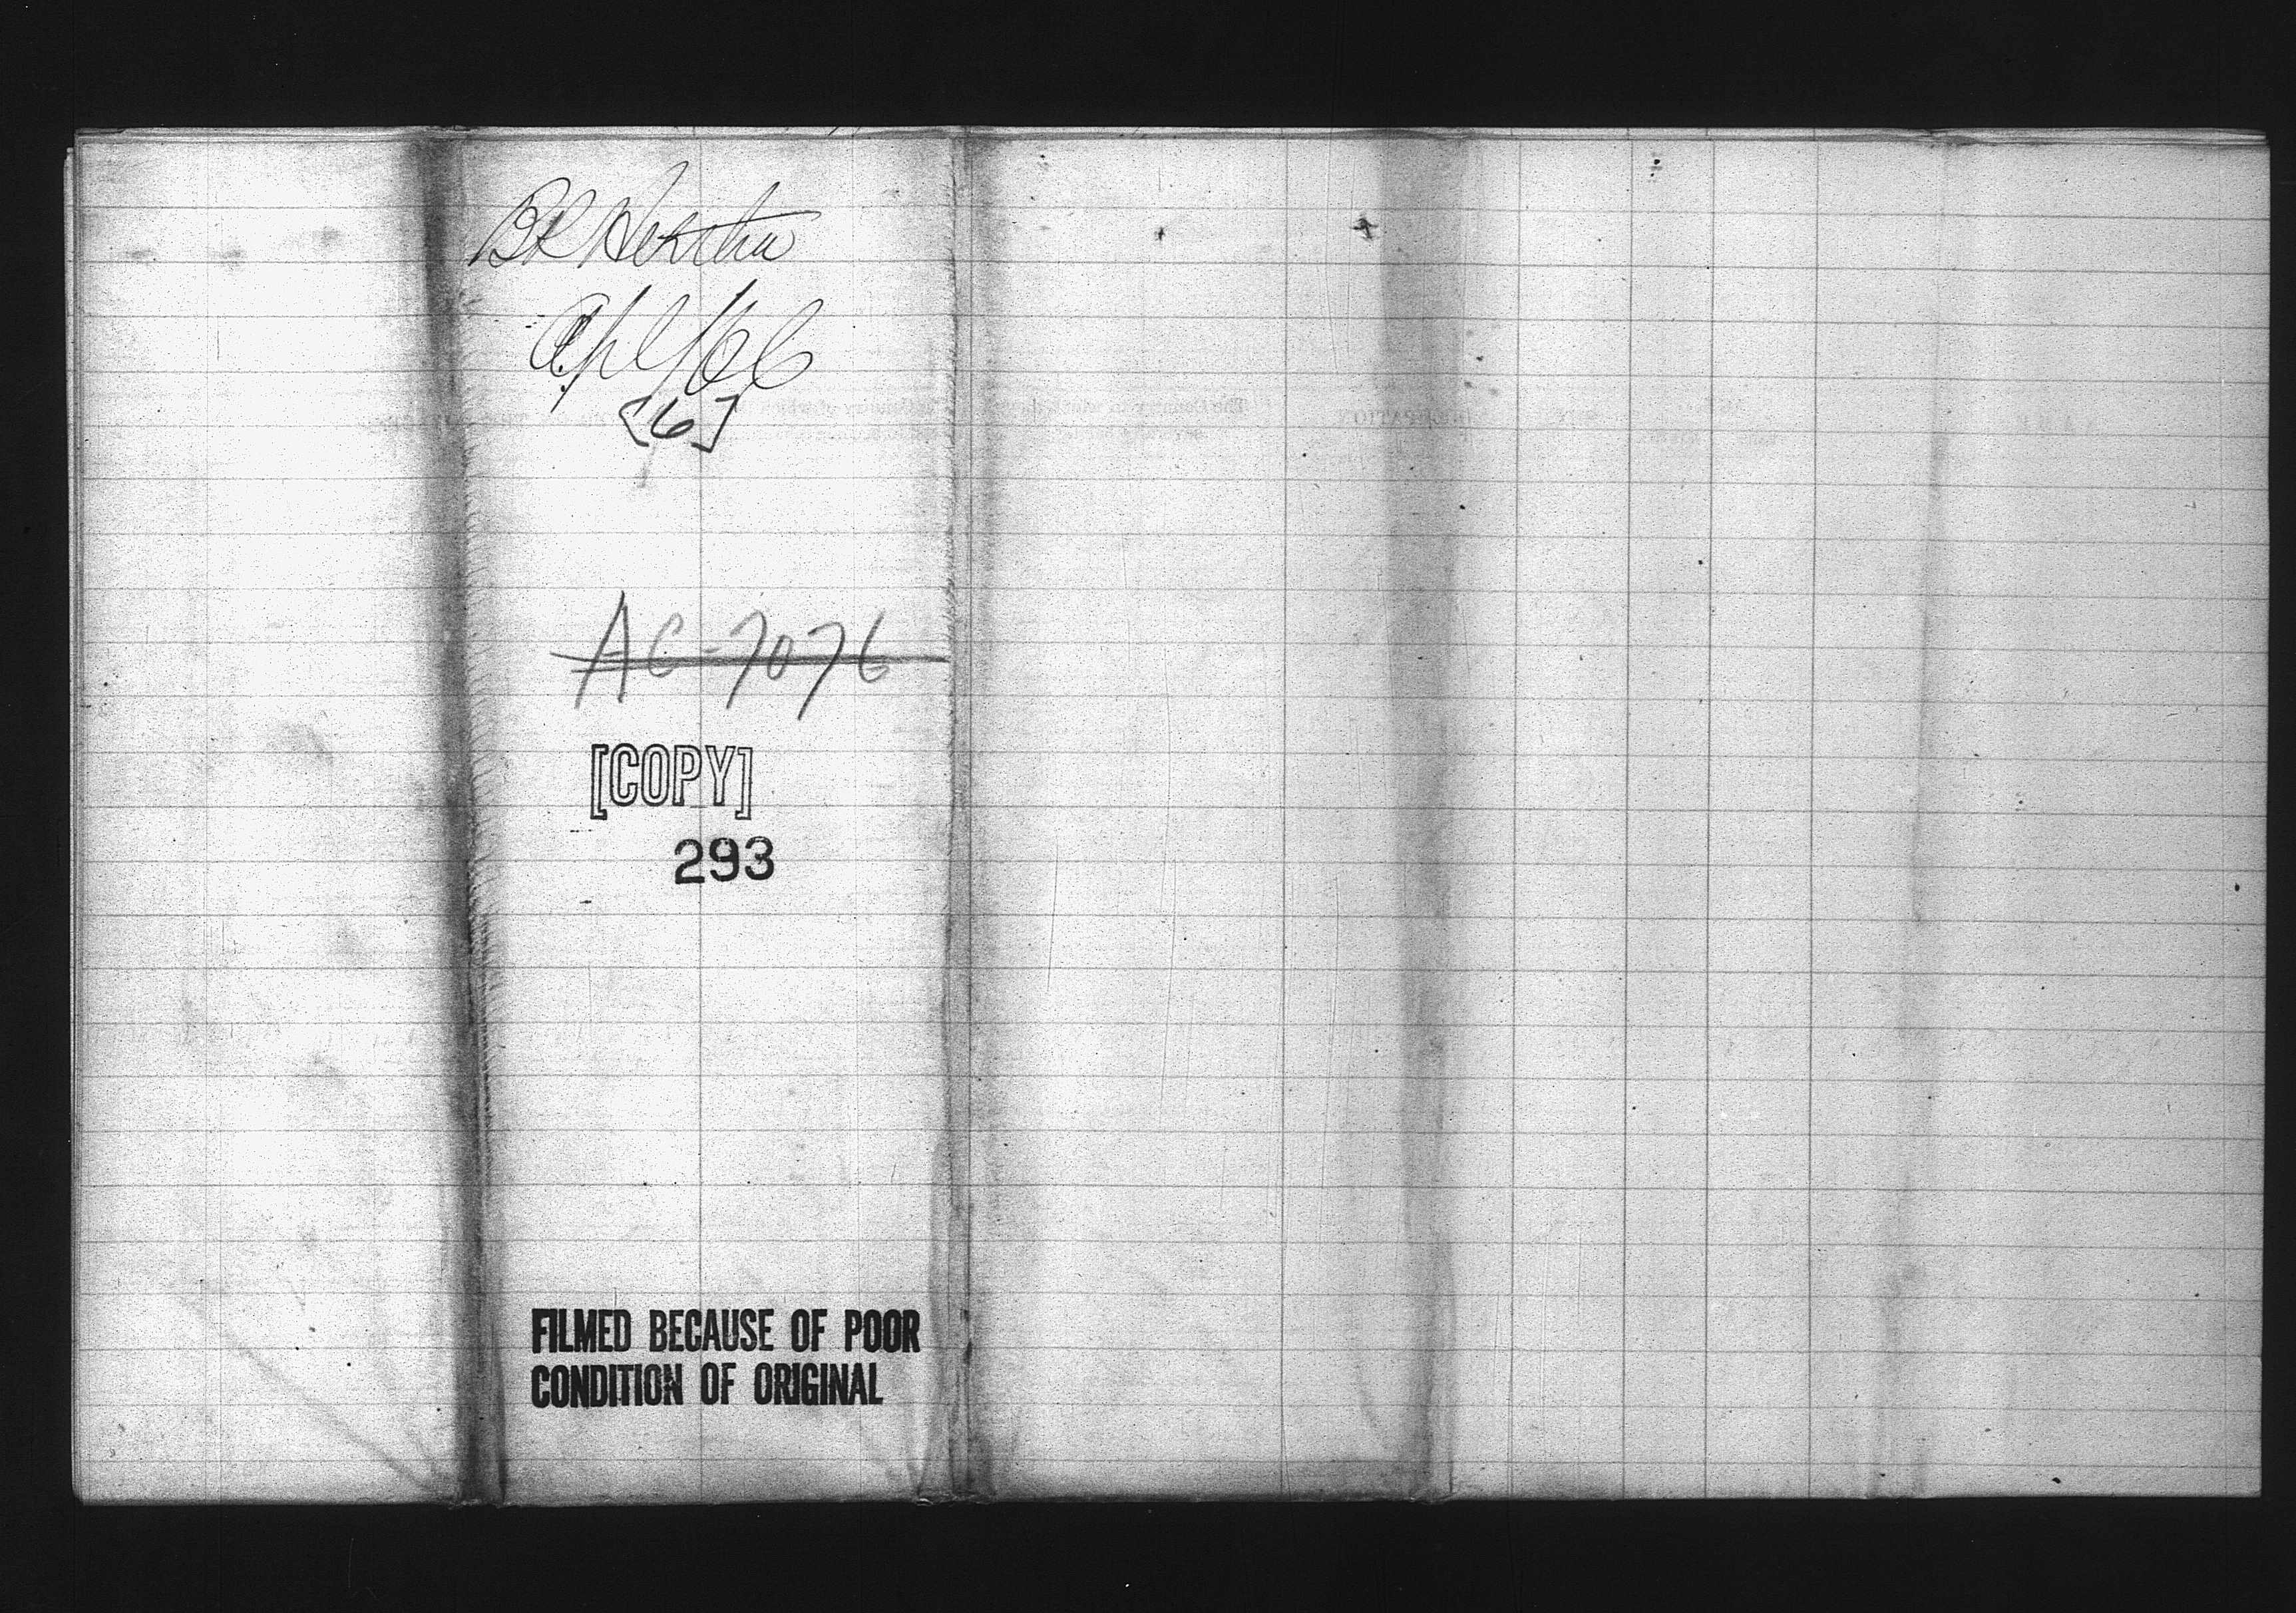 Bk Hertha
Apl/66
[6]
AC-7076
[COPY]
293
FILMED BECAUSE OF POOR
CONDITION OF ORIGINAL